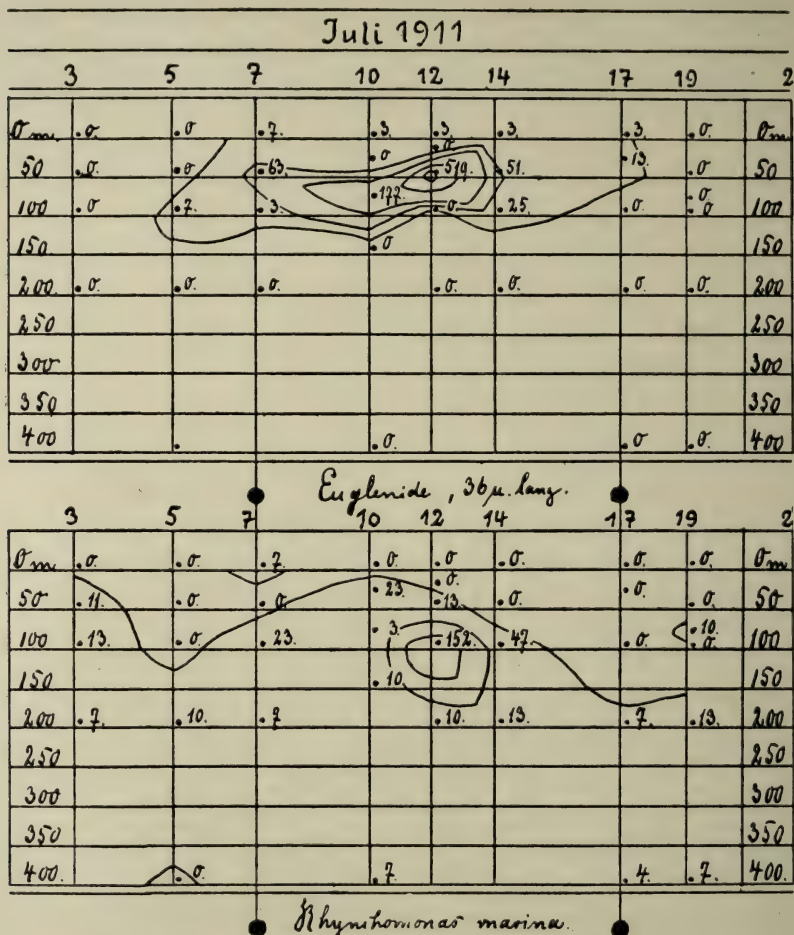 Juli 1911
3 5 7 10 12 14 17 19 2
0 m. .0. .0. .7. .3. .3. .3. .3. .0. 0 m.
.0 .0 .13.
50 .0. .0. .63. .519. 51. .0. 50
.177. .0
100 .0 .7. .3. .0. .25. .0. .0 100
150 .0 150
200 .0. .0. .0. .0. .0. .0. .0. 200
250 250
300 300
350 350
400 . .0. .0 .0. 400
Euglenide, 36 µ. lang.
3 5 7 10 12 14 17 19 2
0 m .0. .0. .7. .0. .0. .0. .0. .0. 0 m
.23. .0. .0.
50 .11. .0. .0. .13. .0. .0. 50
.3. .10.
100 .13. .0 .23. .152. .47. .0. .0. 100
150 .10. 150
200 .7. .10. .7 .10. .13. .7. .13. 200
250 250
300 300
350 350
400. .0. .7 .4. .7. 400.
Rhynchomonas marina.